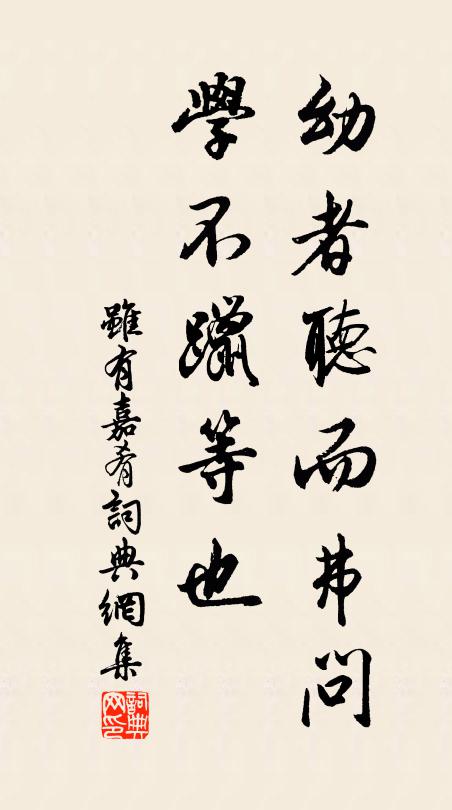 幼者聽而弗問
學不躐等也
雖有嘉肴詞典網集
詞典網印